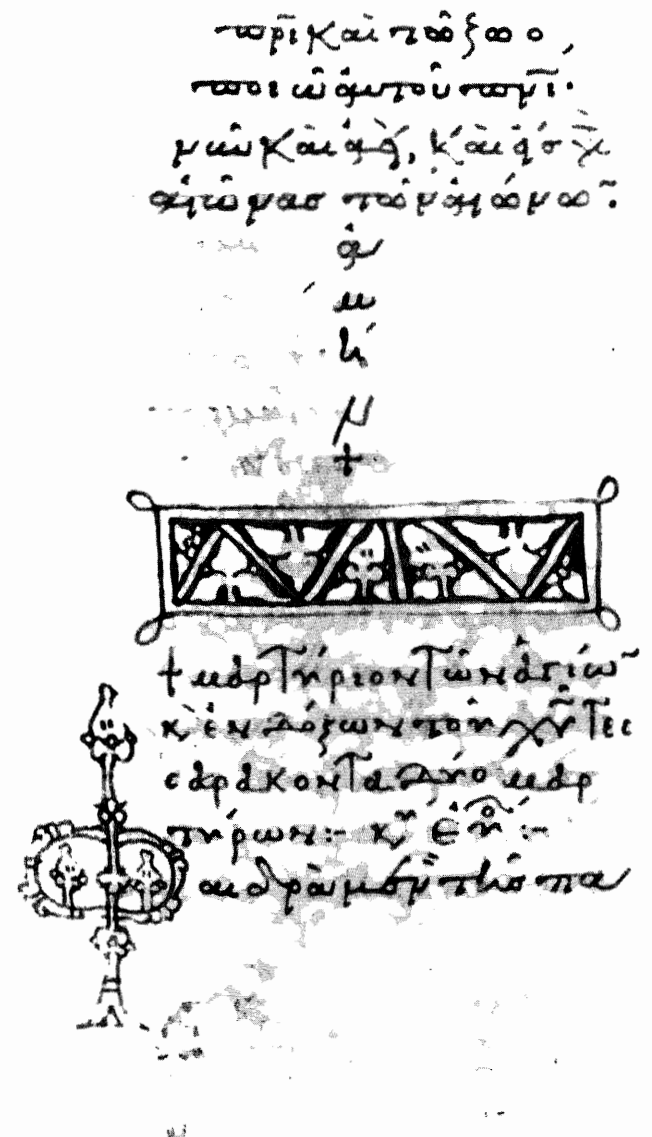 πρὶ καὶ τῶ ζωο
ποιῶ αὐτοῦ πνῖ·
νῦν καὶ ἀεὶ, καὶ εἰς τ
αἰῶνας τῶν αἰώνων:
ἀ
μ
ὴ
ν
+
+ μαρτύριον τῶν ἁγίων
κ ἐνδόξων τοῦ χῦ τεσ
σαράκοντα δύο μαρ
τύρων:-
τῆς πα